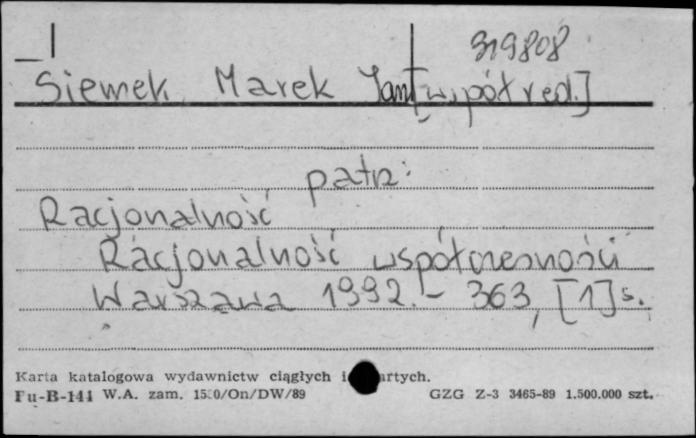 319808
Siemek, Marek Jan [współred.]
patrz:
Racjonalność
Racjonalność współczesności
Warszawa 1992. - 363, [1] s.
Karta katalogowa wydawnictw ciągłych i
Fu-B-141 W.A. zam. /On/DW/89 GZG Z-3 3465-89 1.500.000 szt.